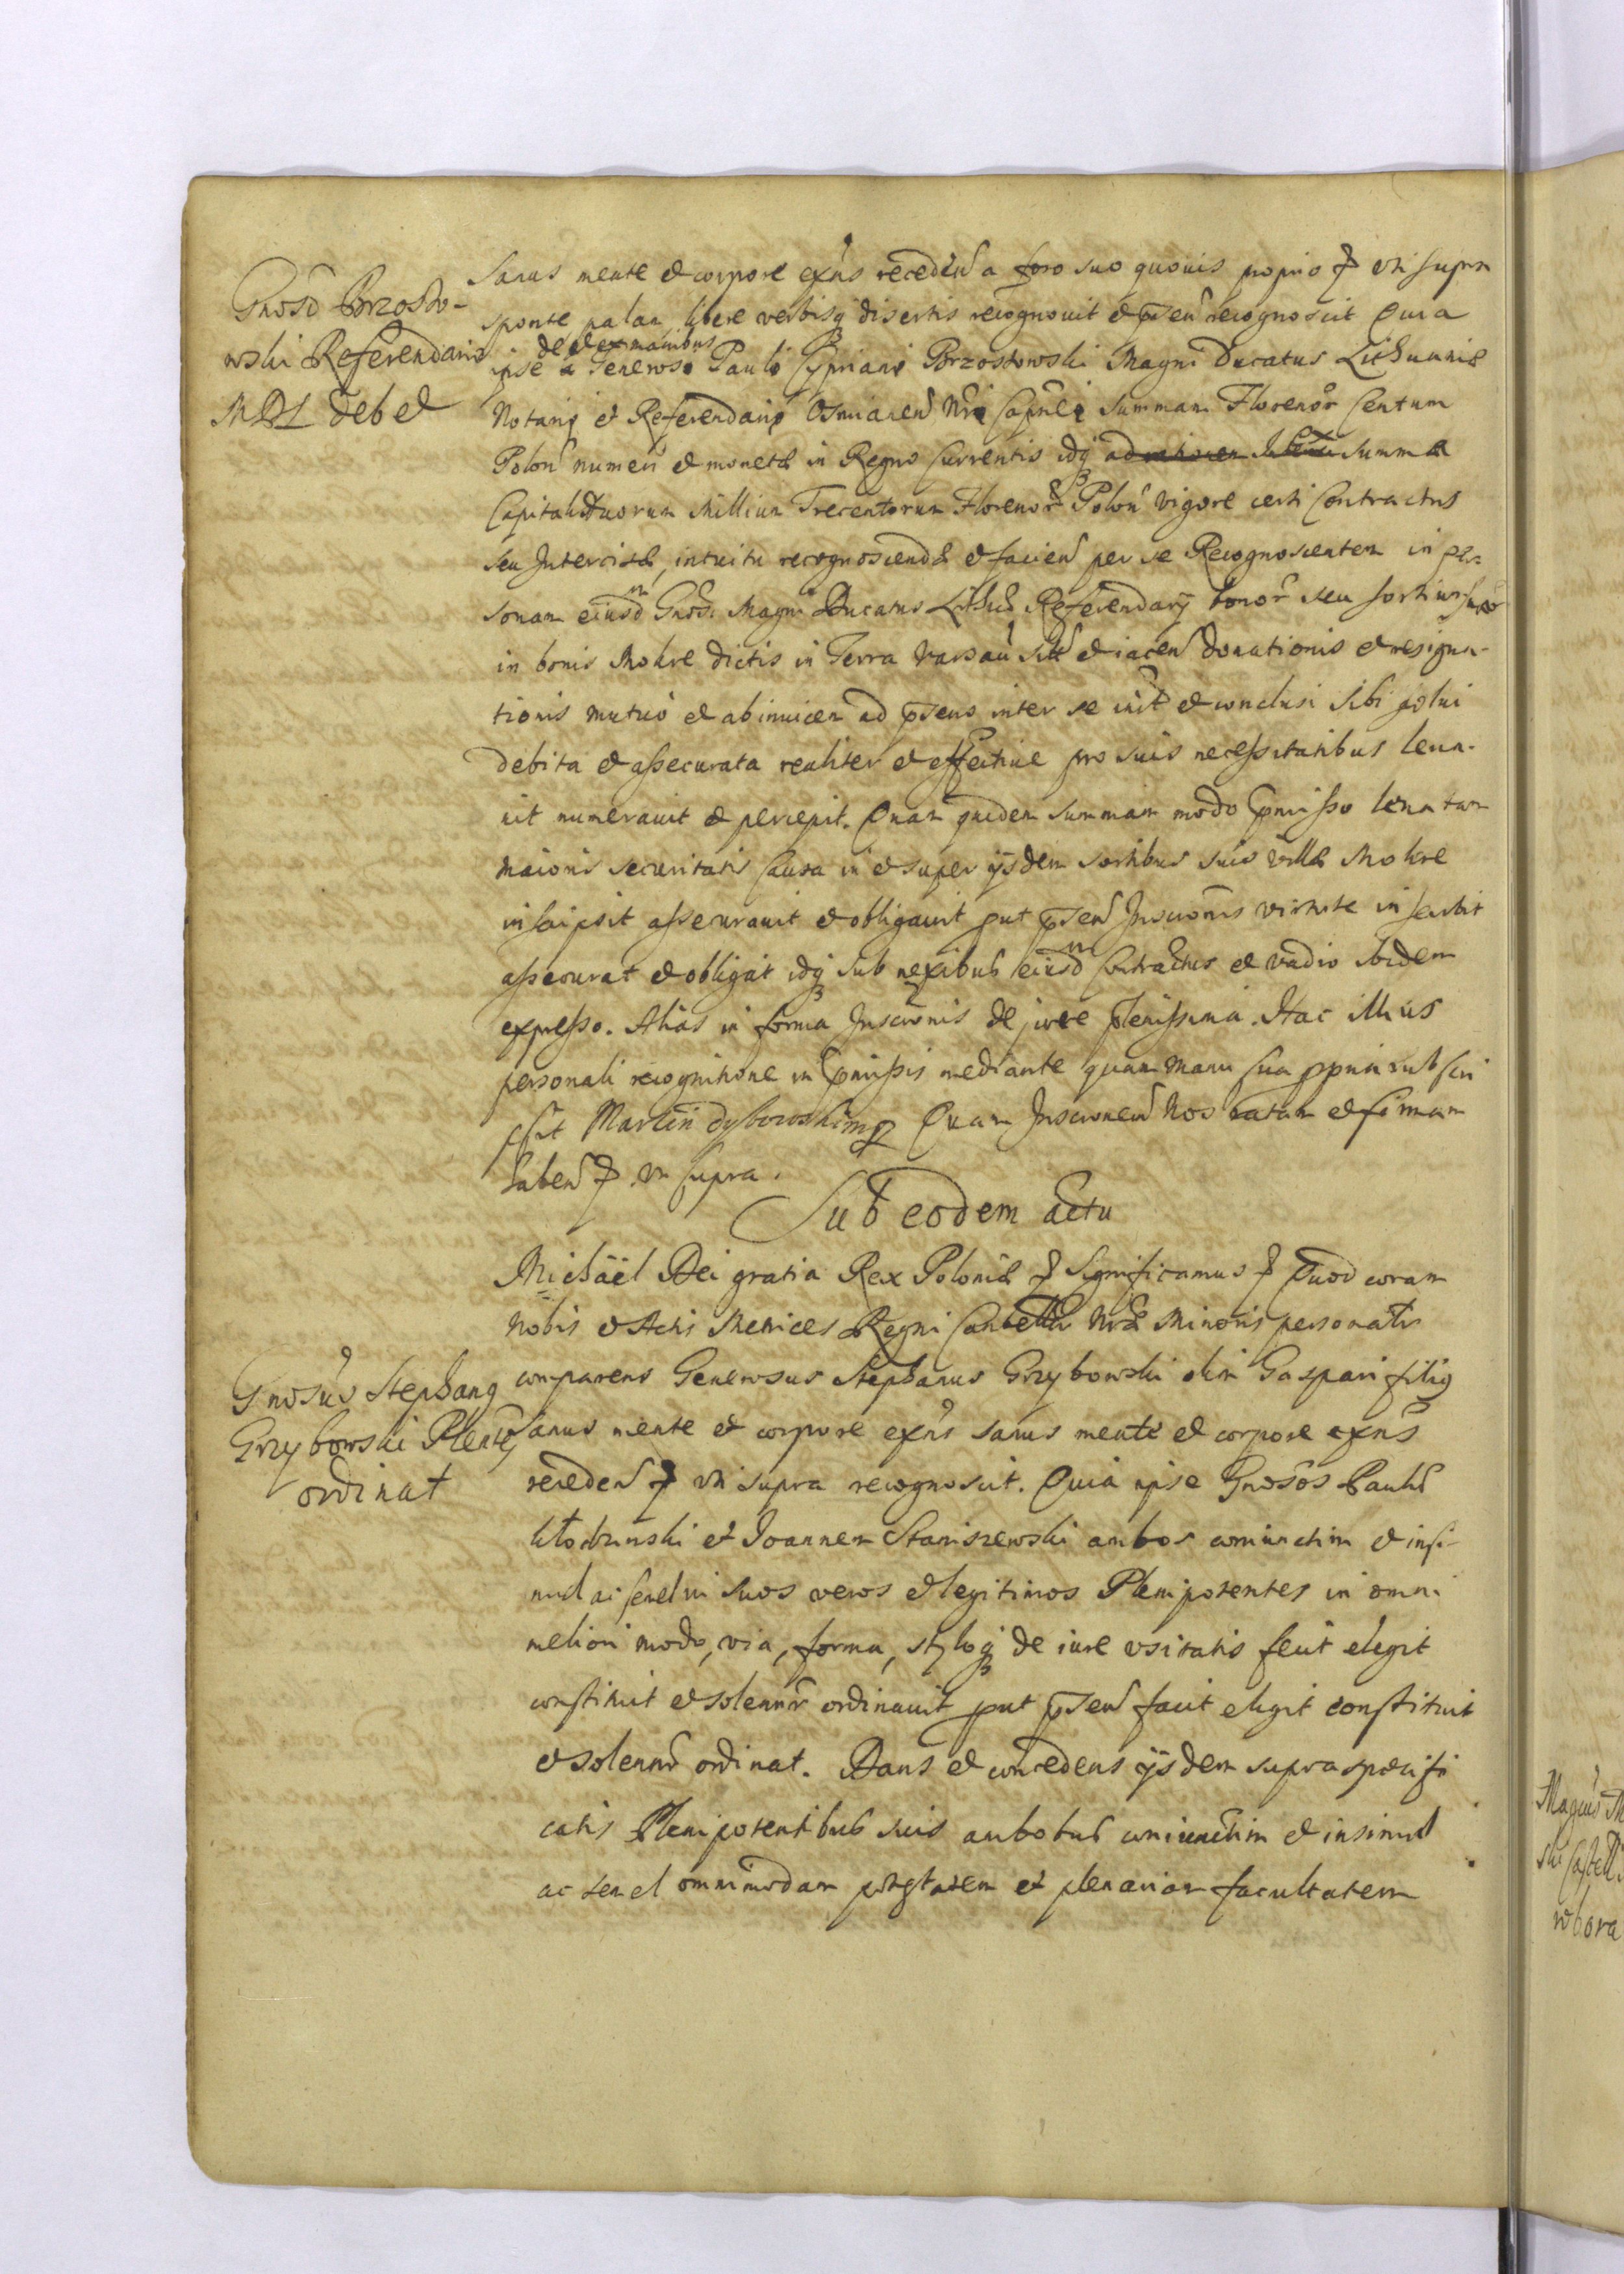 Gnosō Brzosto-
wski Referendario
MDL debet
Sanus mente et corpore exn̄s receden̄ a foro suo quovis proprio et uti supra
sponte palam libere verbisq disertis recognovit et pn̄sen̄ recognoscit Quia
de et ex manibus
ipse a Generosi Pauli Cypriani Brzostowski Magni Ducatus Lithuaniæ
Notarij et Referendarij Osmianen̄ Nr̄i Capnei summam Florenor̄ Centum
Polon̄ numeri et monetæ in Regno currentis idq ex summa
Capitali duorum Millium Trecentorum Florenor̄ Polon̄ vigore certi Contractus
seu Intercisæ, intuitu recognoscendæ et facien̄ per se Recognoscentem in per-
sonam eiusdm Gnosi Magni Ducatus Lithuæ Referendarij bonor̄ seu sortium suar̄
in bonis Mokre dictis in Terra Varsavi sitæ et iacen̄ donationis et resigna-
tionis mutuo et abinvicem ad pn̄sens inter se init et conclusi sibi solui
debita et assecurata realiter et effective pro suis necessitatibus leua-
uit numerauit et percepit. Quam quidem summam modo pmisso leuatam
maioris securitatis causa in et super ijsdem sortibus suis villæ Mokre
inscripsit assecurauit et obligauit put pn̄sen̄ Inscrionis virtute inscribit
assecurat et obligat idq sub nexibus eiusdm Contractus et vadio ibidem
expresso. Alias in forma Inscrionis de jure plenissima. Hac illius
personali recognitione in pmissis mediante quam manu sua ppria subscri
psit Martin Dybowski mp Quam Inscrionem Nos ratam et firmam
haben̄ et uti supra.
Sub eodem actu
Michaël Dei gratia Rex Poloniæ et Significamus et Quod coram
Nobis et Actis Metrices Regni Cancellæ Nr̄æ Minoris personalr̄
Gnosus Stephang
Grzybowski Plentes
ordinat
comparens Generosus Stephanus Grzybowski olim Gaspari filig
sanus mente et corpore exn̄s sanus mente et corpore exn̄s
receden̄ et uti supra recognoscit. Quia ipse Gnosos Paulū
Kłodzinski et Joannem Staniszewski ambos coniunctim et insi-
mul ac semel vi suos veros et legitimos Plenipotentes in omni
meliori modo, via, forma, styloq de iure usitatis fecit elegit
constituit et solennr̄ ordinauit put pn̄sen̄ facit elegit constituit
et solennr̄ ordinat. Dans et concedens ijsdem supraspecifi
catis Plenipotentibus suis ambobus coniunctim et insimul
ac semel omnimodam ptestatem et plenariam facultatem